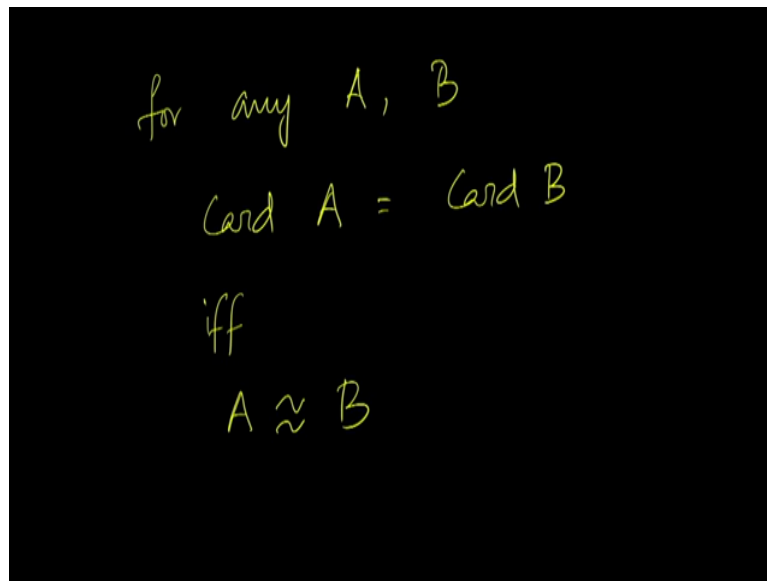 for any A, B
Card A = Card B
iff
A ≈ B